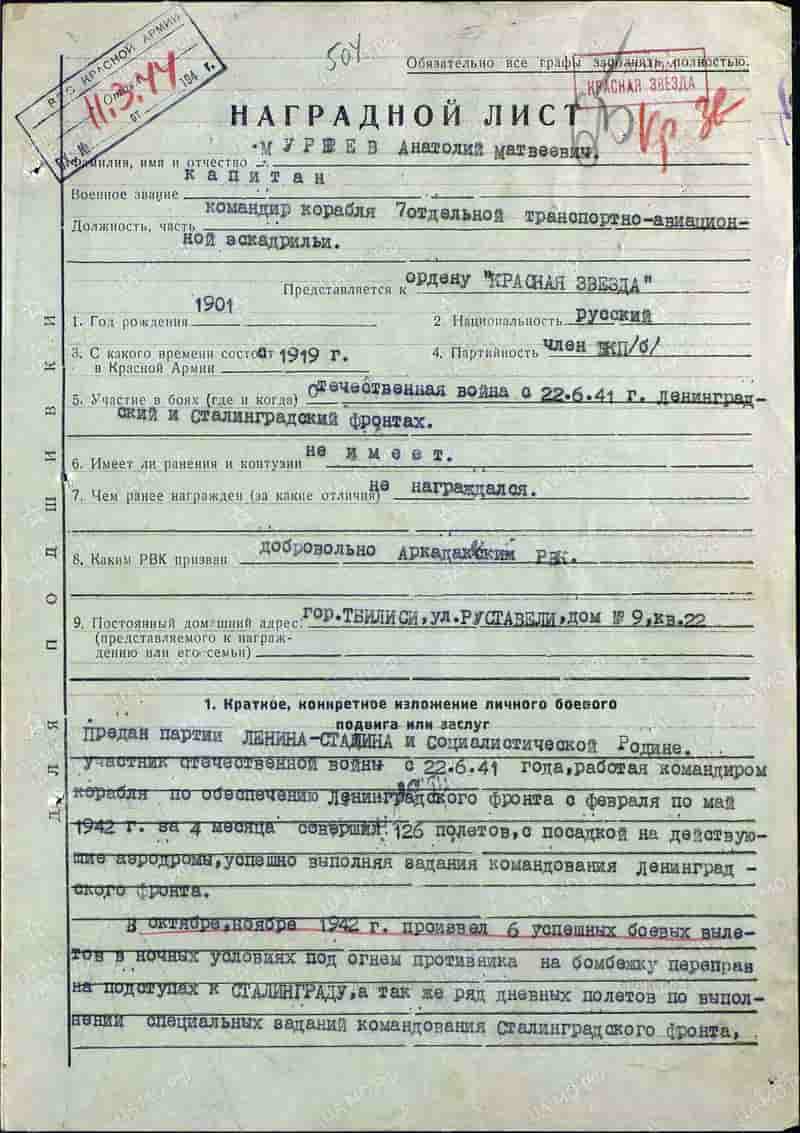 ВВС КРАСНОЙ АРМИИ
11.3.44
194 г.
504
Обязательно все графы заполнять полностью.
КРАСНАЯ ЗВЕЗДА
Кр Зв
НАГРАДНОЙ ЛИСТ
Фамилия, имя и отчество МУРШЕВ Анатолий Матвеевич.
Военное звание капитан
Должность, часть командир корабля 7отдельной транспортно-авиацион-
ной эскадрильи.
Представляется к ордену "КРАСНАЯ ЗВЕЗДА"
1. Год рождения 1901
2 Национальность русский
3. С какого времени состоит 1919 г.
в Красной Армии
4. Партийность член ВКП/б/
5. Участие в боях (где и когда) Отечественная война с 22.6.41 г. Ленинград-
ский и Сталинградский фронтах.
6. Имеет ли ранения и контузии не имеет.
7. Чем ранее награжден (за какие отличия) не награждался.
8. Каким РВК призван добровольно Аркадакским РВК.
9. Постоянный домашний адрес: гор.ТБИЛИСИ,ул.РУСТАВЕЛИ,дом № 9,кв.22
(представляемого к награж-
дению или его семьи)
ДЛЯ ПОДШИВКИ
1. Краткое, конкретное изложение личного боевого
подвига или заслуг
Предан партии ЛЕНИНА-СТАЛИНА и Социалистической Родине.
Участник отечественной войны с 22.6.41 года,работая командиром
корабля по обеспечению Ленинградского фронта с февраля по май
1942 г. за 4 месяца совершил 126 полетов,с посадкой на действую-
щие аэродромы,успешно выполняя задания командования Ленинград -
ского фронта.
В октябре,ноябре 1942 г. произвел 6 успешных боевых выле-
тов в ночных условиях под огнем противника на бомбежку переправ
на подступах к СТАЛИНГРАДУ,а так же ряд дневных полетов по выпол-
нении специальных заданий командования Сталинградского фронта,